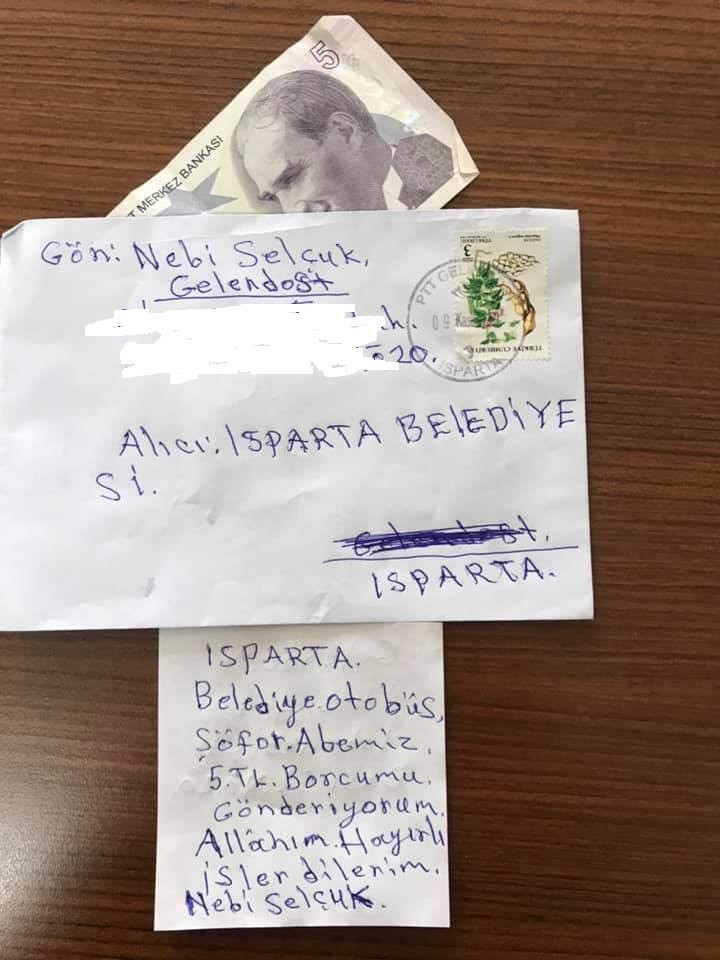 5
T MERKEZ BANKASI
Gön: Nebi Selçuk,
Gelendost
h.
20.
3
TÜRKİYE CUMHURİYE
PTT GEL
09 Kas
ISPARTA
Alıcı: ISPARTA BELEDİYE
Sİ.
Gelendost,
ISPARTA.
ISPARTA.
Belediye.otobüs,
Şöför.Abemiz.
5.TL.Borcumu.
Gönderiyorum.
Allâhım.Hayırlı
işler dilerim.
Nebi Selçuk.